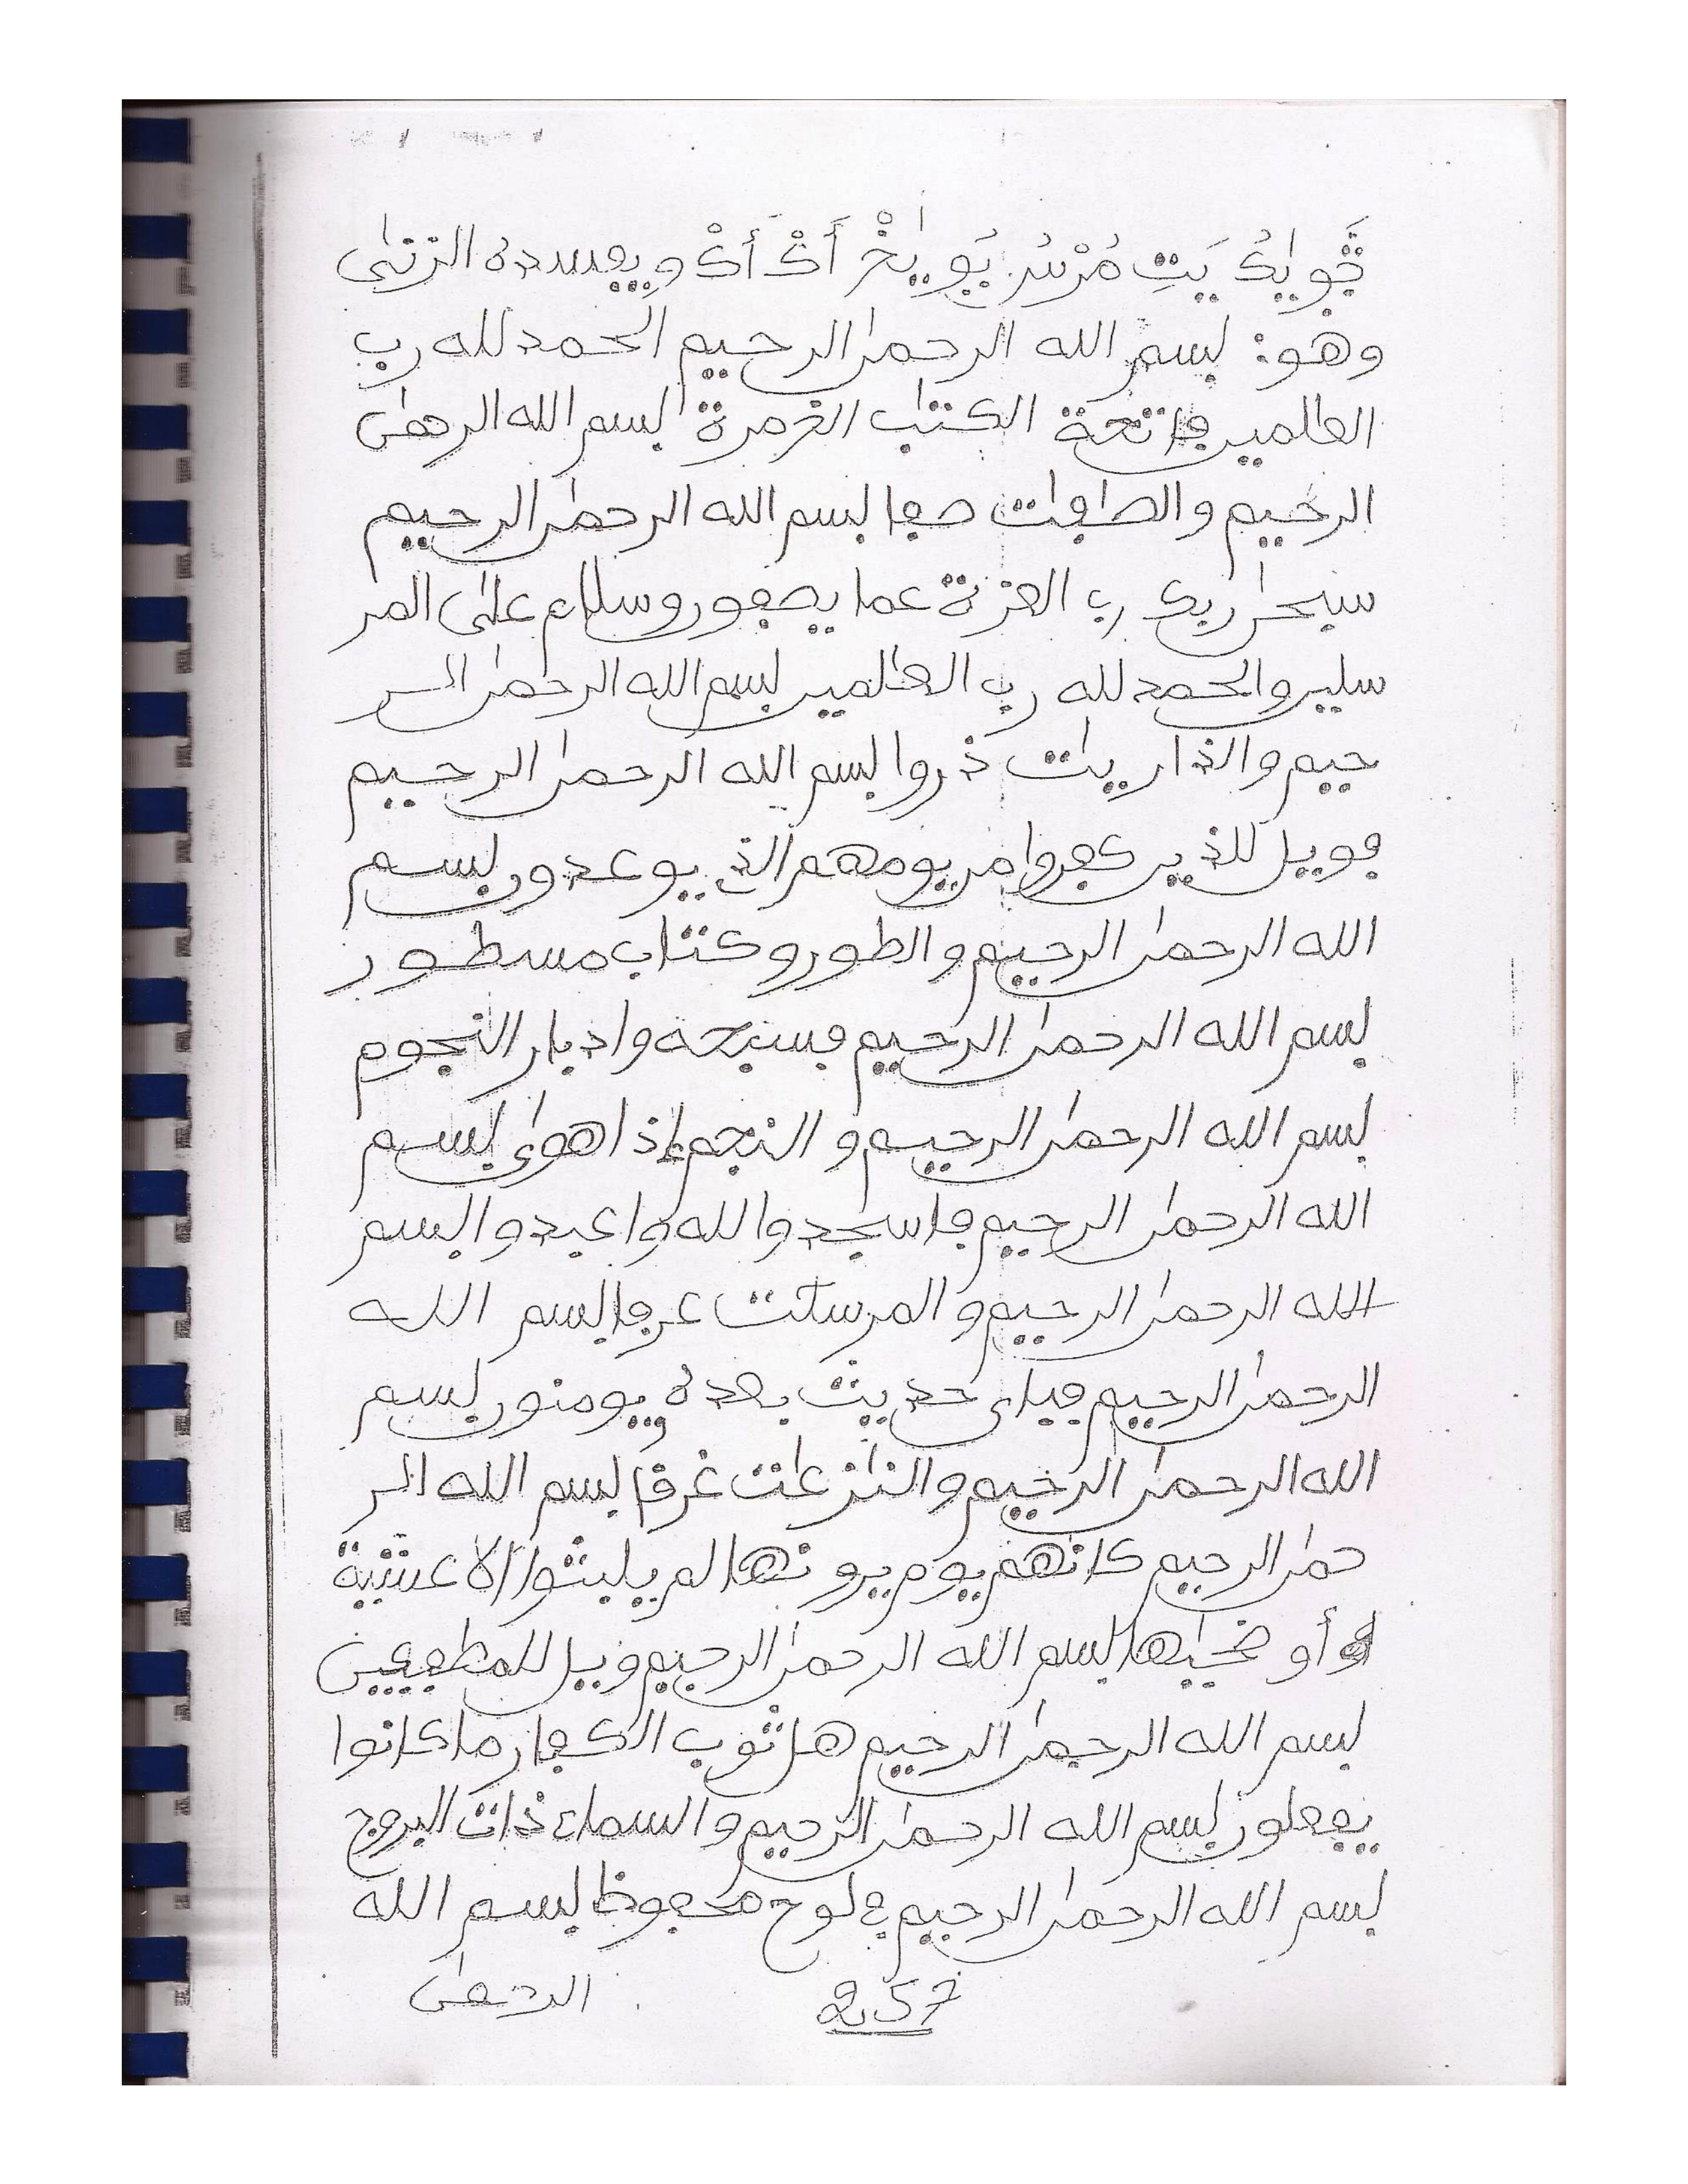 يَتِ مُرْسُ أَكْ أَكْ ويفسده الزنى
وهو: بسم الله الرحمن الرحيم الحمد لله رب
العلمين فاتحة الكتب الغمرة بسم الله الرحمن
الرحيم والصفت صفا بسم الله الرحمن الرحيم
سبحن ربك رب العزة عما يصفون وسلام على المر
سلين والحمد لله رب العلمين بسم الله الرحمن الر
حيم والذاريات ذروا بسم الله الرحمن الرحيم
فويل للذين كفروا من يومهم الذي يوعدون بسم
الله الرحمن الرحيم والطور وكتاب مسطور
بسم الله الرحمن الرحيم فسبحه وادبار النجوم
بسم الله الرحمن الرحيم والنجم إذا هوى بسم
الله الرحمن الرحيم فاسجدوا لله واعبدوا بسم
الله الرحمن الرحيم والمرسلت عرفا بسم الله
الرحمن الرحيم فباى حديث بعده يومنون بسم
الله الرحمن الرحيم والنزعت غرقا بسم الله الر
حمن الرحيم كانهم يوم يرونها لم يلبثوا الا عشية
أو ضحيها بسم الله الرحمن الرحيم ويل للمطففين
بسم الله الرحمن الرحيم هل ثوب الكفار ما كانوا
يفعلون بسم الله الرحمن الرحيم والسماء ذات البروج
بسم الله الرحمن الرحيم في لوح محفوظ بسم الله
257 الرحمن